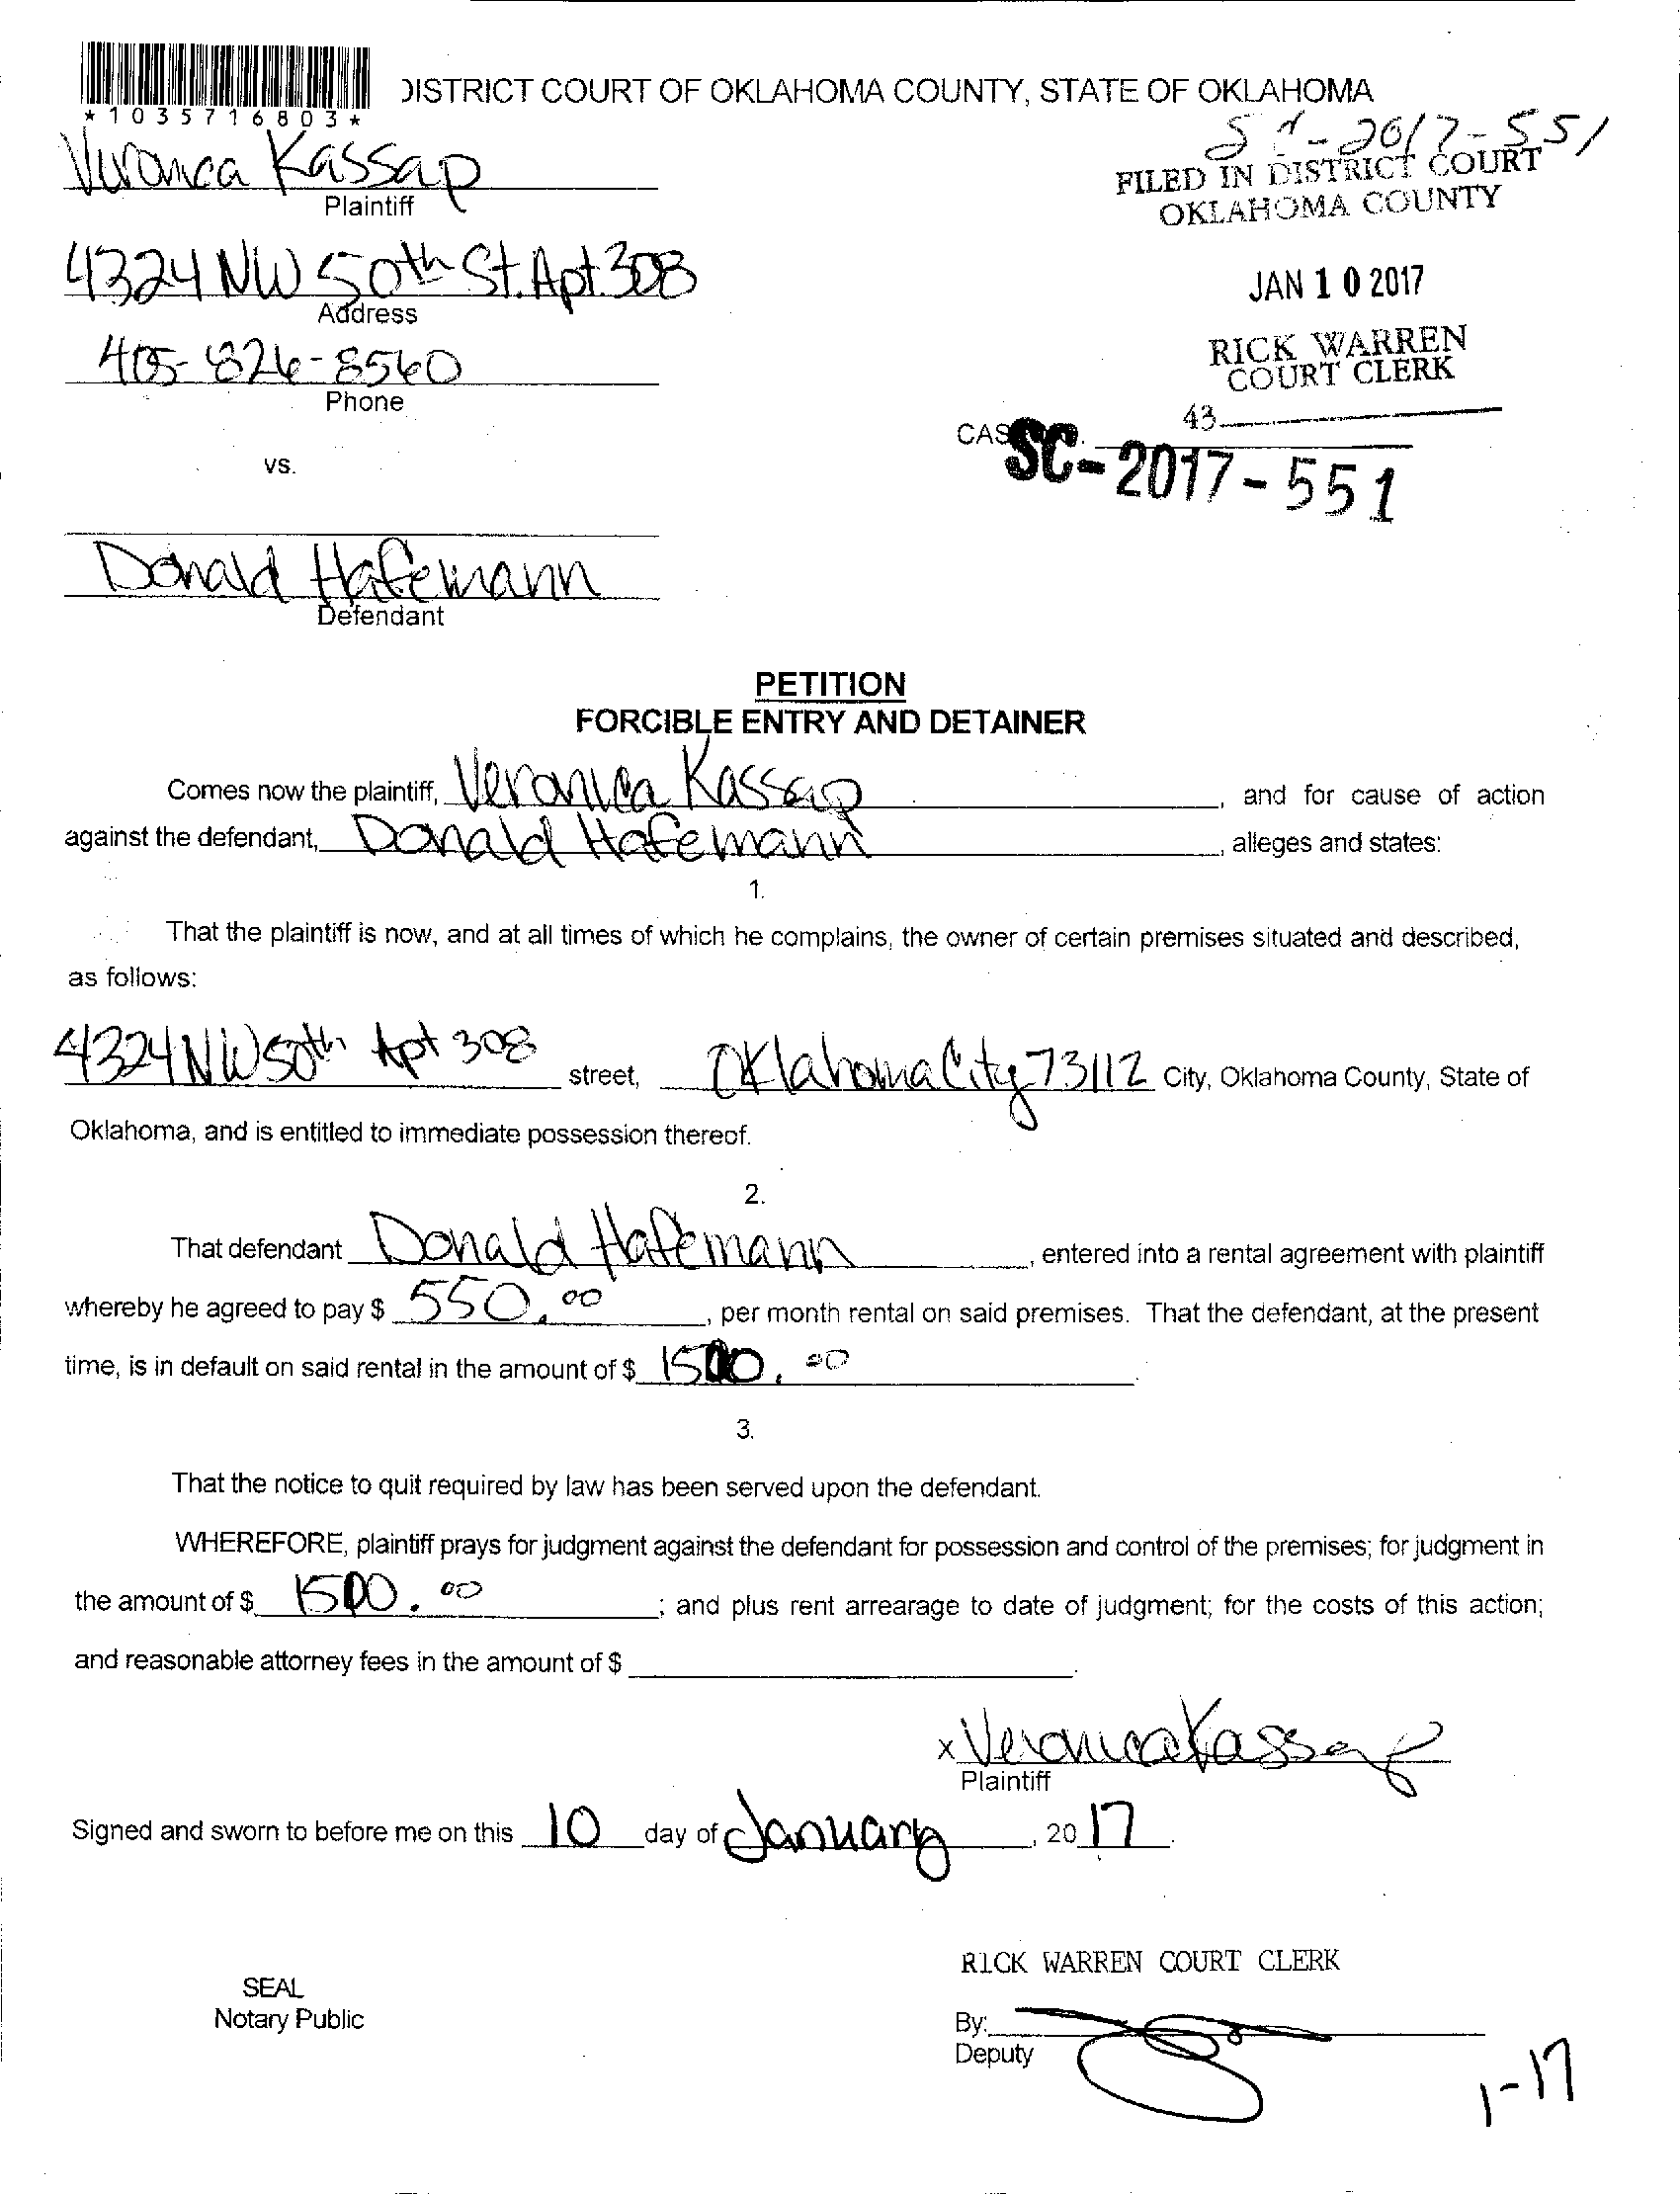 *1035716803*
DISTRICT COURT OF OKLAHOMA COUNTY, STATE OF OKLAHOMA
2017-551
Veronica Kassap
Plaintiff
FILED IN DISTRICT COURT
OKLAHOMA COUNTY
4324 NW 50th St. Apt. 308
Address
JAN 10 2017
405-826-8560
Phone
RICK WARREN
COURT CLERK
43
SC-2017-551
vs.
Donald Hafemann
Defendant
PETITION
FORCIBLE ENTRY AND DETAINER
Comes now the plaintiff, Veronica Kassap, and for cause of action
against the defendant, Donald Hafemann, alleges and states:
1.
That the plaintiff is now, and at all times of which he complains, the owner of certain premises situated and described,
as follows:
4324 NW 50th Apt 308 street, Oklahoma City 73112 City, Oklahoma County, State of
Oklahoma, and is entitled to immediate possession thereof.
2.
That defendant Donald Hafemann, entered into a rental agreement with plaintiff
whereby he agreed to pay $ 550.00, per month rental on said premises. That the defendant, at the present
time, is in default on said rental in the amount of $ 1500.00.
3.
That the notice to quit required by law has been served upon the defendant.
WHEREFORE, plaintiff prays for judgment against the defendant for possession and control of the premises; for judgment in
the amount of $ 1500.00; and plus rent arrearage to date of judgment; for the costs of this action;
and reasonable attorney fees in the amount of $
x Veronica Kassap
Plaintiff
Signed and sworn to before me on this 10 day of January, 2017.
RICK WARREN COURT CLERK
SEAL
Notary Public
By:
Deputy
1-17